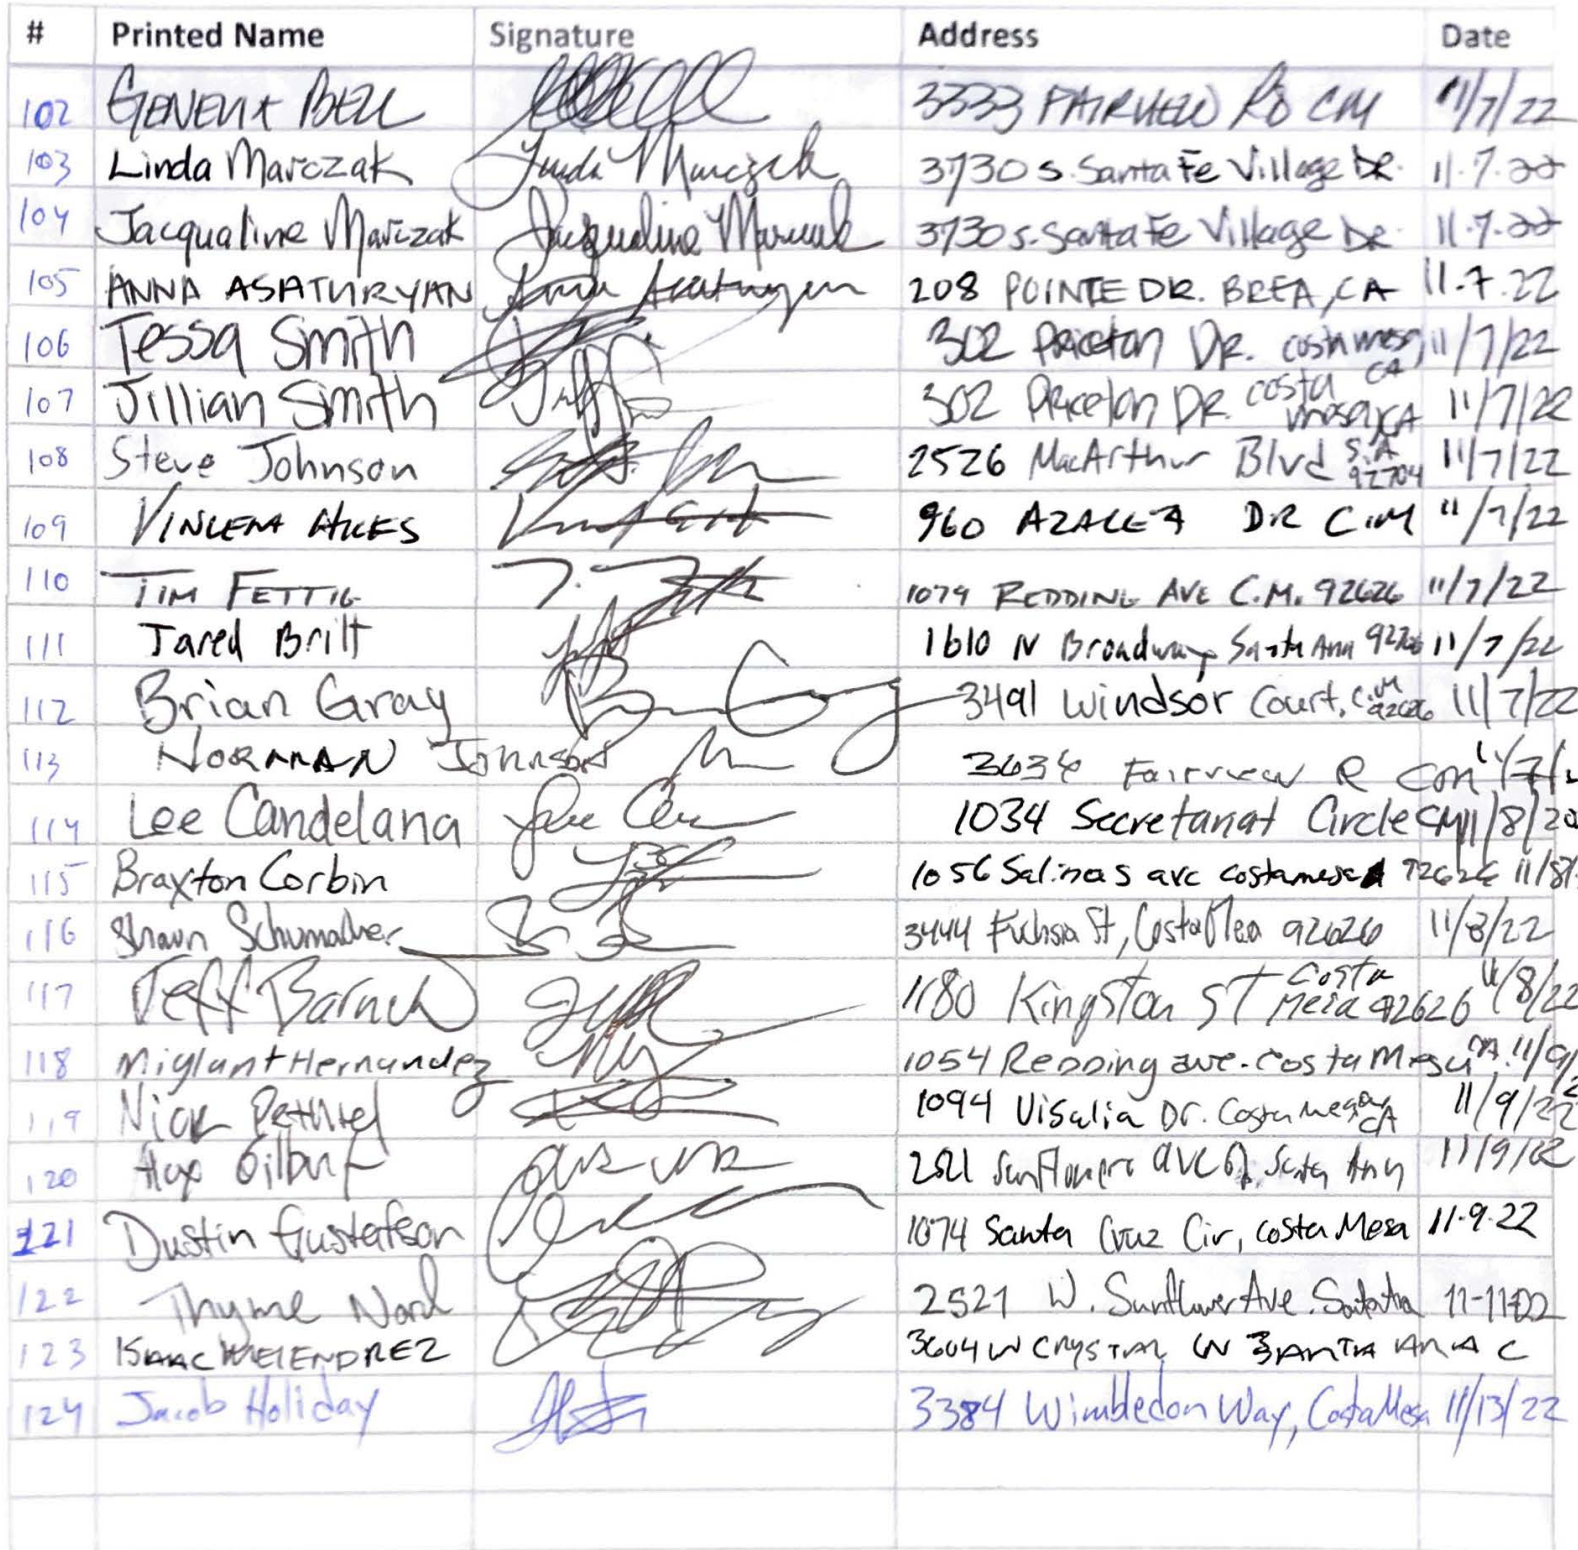 # Printed Name Signature Address Date
102 GENEVIX BELL 3333 FAIRVIEW RD CM 11/7/22
103 Linda Marczak Linda Marczak 3730 S. Santa Fe Village DR. 11.7.22
104 Jacqualine Marczak Jacqualine Marczak 3730 S. Santa Fe Village DR. 11.7.22
105 ANNA ASATURYAN Anna Asaturyan 208 POINTE DR. BREA, CA 11.7.22
106 Tessa Smith 302 DR. costa mesa CA 11/7/22
107 Jillian Smith 302 DR. costa mesa, CA 11/7/22
108 Steve Johnson 2526 MacArthur Blvd S.A 92704 11/7/22
109 960 AZALEA DR C.M 11/7/22
110 TIM FETTIG 1079 REDDING AVE C.M. 92626 11/7/22
111 Jared Britt 1610 N Broadway Santa Ana 92706 11/7/22
112 Brian Gray 3491 Windsor Court, C.M 92626 11/7/22
113 NORMAN Johnson Fairview R 11/7/
114 Lee Candelana 1034 Secretariat Circle CM 11/8/20
115 Braxton Corbin 1056 Salinas ave costamesa 92626 11/8/
116 Shawn Schumacher 3444 Fuchsia St, Costa Mesa 92626 11/8/22
117 Jeff 1180 Kingston ST Costa Mesa 92626 11/8/22
118 Hernandez 1054 Redding ave. Costa Mesa CA. 11/9/2
119 Nick 1094 Visalia Dr. Costa mesa CA 11/9/22
120 Gilbert ave Santa Ana 11/9/22
121 Dustin Gustafson 1074 Santa Cruz Cir, Costa Mesa 11.9.22
122 Thyme 2521 W. Sunflower Ave. 11-11-22
123 ISAAC MELENDREZ 3604 W CRYSTAL LN SANTA ANA C
124 Jacob Holiday 3384 Wimbledon Way, Costa Mesa 11/13/22